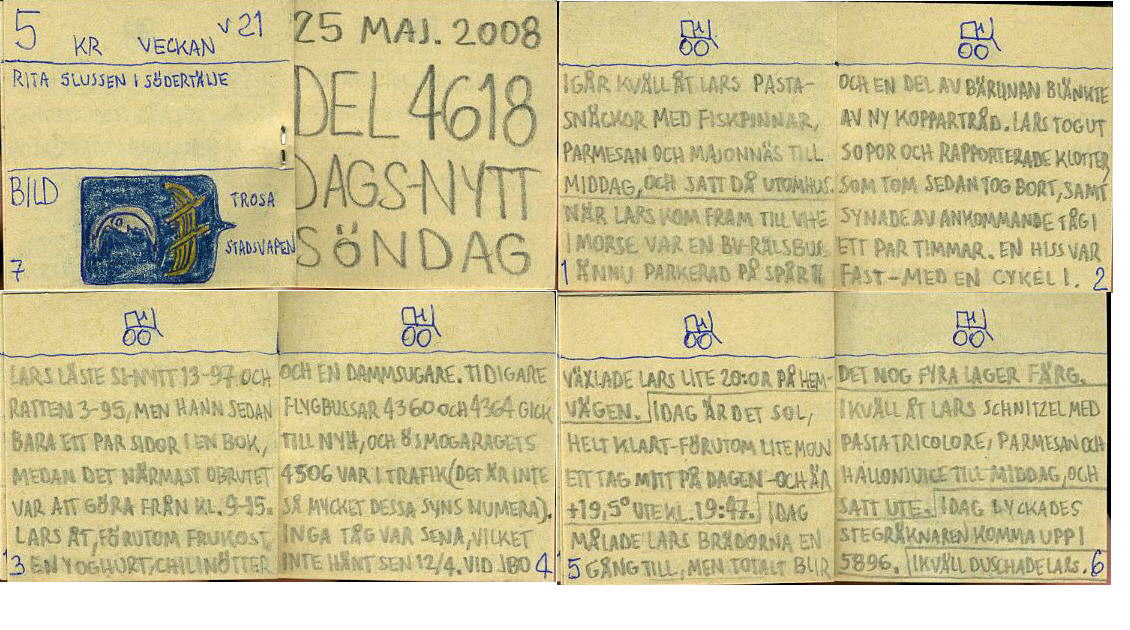 5 KR VECKAN V 21
RITA SLUSSEN I SÖDERTÄLJE
BILD
TROSA
STADSVAPEN
7
25 MAJ. 2008
DEL 4618
DAGS-NYTT
SÖNDAG
IGÅR KVÄLL ÅT LARS PASTA-
SNÄCKOR MED FISKPINNAR,
PARMESAN OCH MAJONNÄS TILL
MIDDAG, OCH SATT DÅ UTOMHUS.
NÄR LARS KOM FRAM TILL VHE
I MORSE VAR EN BV-RÄLSBUSS
ÄNNU PARKERAD PÅ SPÅR
1
OCH EN DEL AV BÄRLINAN BLÄNKTE
AV NY KOPPARTRÅD. LARS TOG UT
SOPOR OCH RAPPORTERADE KLOTTER,
SOM TOM SEDAN TOG BORT, SAMT
SYNADE AV ANKOMMANDE TÅG I
ETT PAR TIMMAR. EN HISS VAR
FAST-MED EN CYKEL I.
2
LARS LÄSTE SL-NYTT 13-97 OCH
RATTEN 3-95, MEN HANN SEDAN
BARA ETT PAR SIDOR I EN BOK,
MEDAN DET NÄRMAST OBRUTET
VAR ATT GÖRA FRÅN KL. 9-15.
LARS ÅT, FÖRUTOM FRUKOST,
EN YOGHURT, CHILINÖTTER
3
OCH EN DAMMSUGARE. TIDIGARE
FLYGBUSSAR 4360 OCH 4364 GICK
TILL NYH, OCH ÖSMOGARAGETS
4506 VAR I TRAFIK (DET ÄR INTE
SÅ MYCKET DESSA SYNS NUMERA).
INGA TÅG VAR SENA, VILKET
INTE HÄNT SEN 12/4. VID JBO
4
VÄXLADE LARS LITE 20:OR PÅ HEM-
VÄGEN. IDAG ÄR DET SOL,
HELT KLART-FÖRUTOM LITE MOLN
ETT TAG MITT PÅ DAGEN-OCH ÄR
+19,5° UTE KL. 19:47. IDAG
MÅLADE LARS BRÄDORNA EN
GÅNG TILL, MEN TOTALT BLIR
5
DET NOG FYRA LAGER FÄRG.
IKVÄLL ÅT LARS SCHNITZEL MED
PASTA TRICOLORE, PARMESAN OCH
HALLONJUICE TILL MIDDAG, OCH
SATT UTE. IDAG LYCKADES
STEGRÄKNAREN KOMMA UPP I
5896. IKVÄLL DUSCHADE LARS.
6